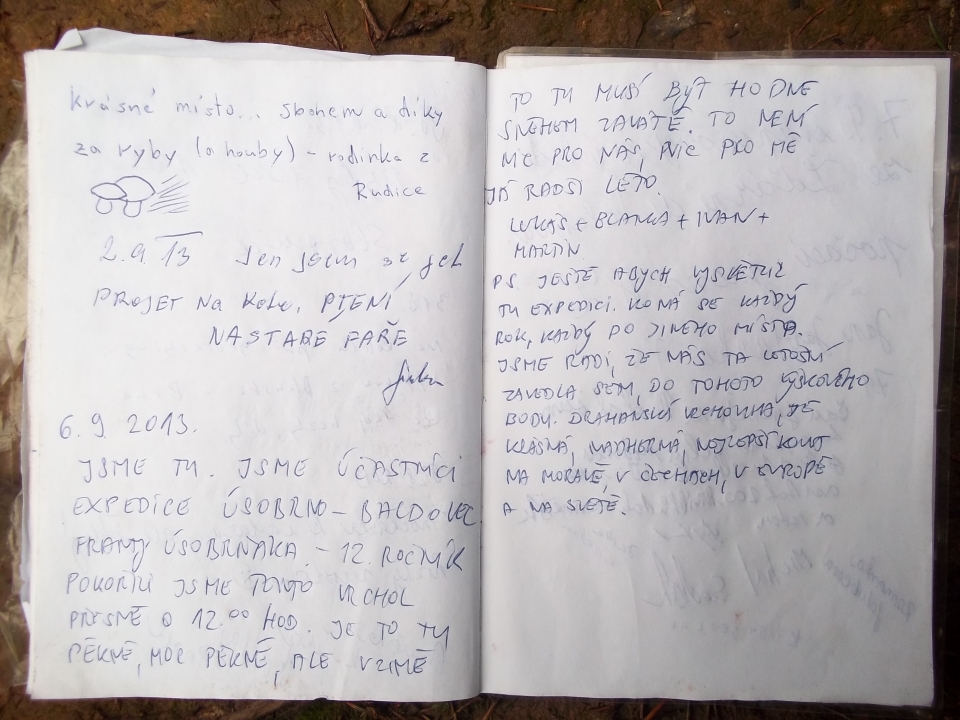 krásné místo... sbohem a díky
za ryby (a houby) - rodinka z
Rudice
2.9.13 Jen jsem si jel
PROJET NA KOLE, PJENÍ
NA STARÉ FAŘE
6.9.2013.
JSME TU. JSME ÚČASTNÍCI
EXPEDICE ÚSOBRNO - BALDOVEC
FRANTY ÚSOBRŇÁKA - 12. ROČNÍK
POKOŘILI JSME TENTO VRCHOL
PŘESNĚ O 12.00 HOD. JE TO TU
PĚKNÉ, MOC PĚKNÉ, ALE V ZIMĚ
TO TU MUSÍ BÝT HODNE
SNĚHEM ZAVÁTÉ. TO NENÍ
NIC PRO NÁS, NIC PRO MĚ
JÁ RADŠI LÉTO.
LUKÁŠ + BLANKA + IVAN +
MARTIN
PS. JEŠTĚ ABYCH VYSVĚTLIL
TU EXPEDICI. KONÁ SE KAŽDÝ
ROK, KAŽDÝ PO JINÉHO MÍSTA.
JSME RÁDI, ŽE NÁS TA LETOŠNÍ
ZAVEDLA SEM, DO TOHOTO VÝŠKOVÉHO
BODU. DRAHANSKÁ VRCHOVINA, JE
KRÁSNÁ, NÁDHERNÁ, NEJLEPŠÍ KOUT
NA MORAVĚ, V ČECHÁCH, V EVROPĚ
A NA SVĚTĚ.